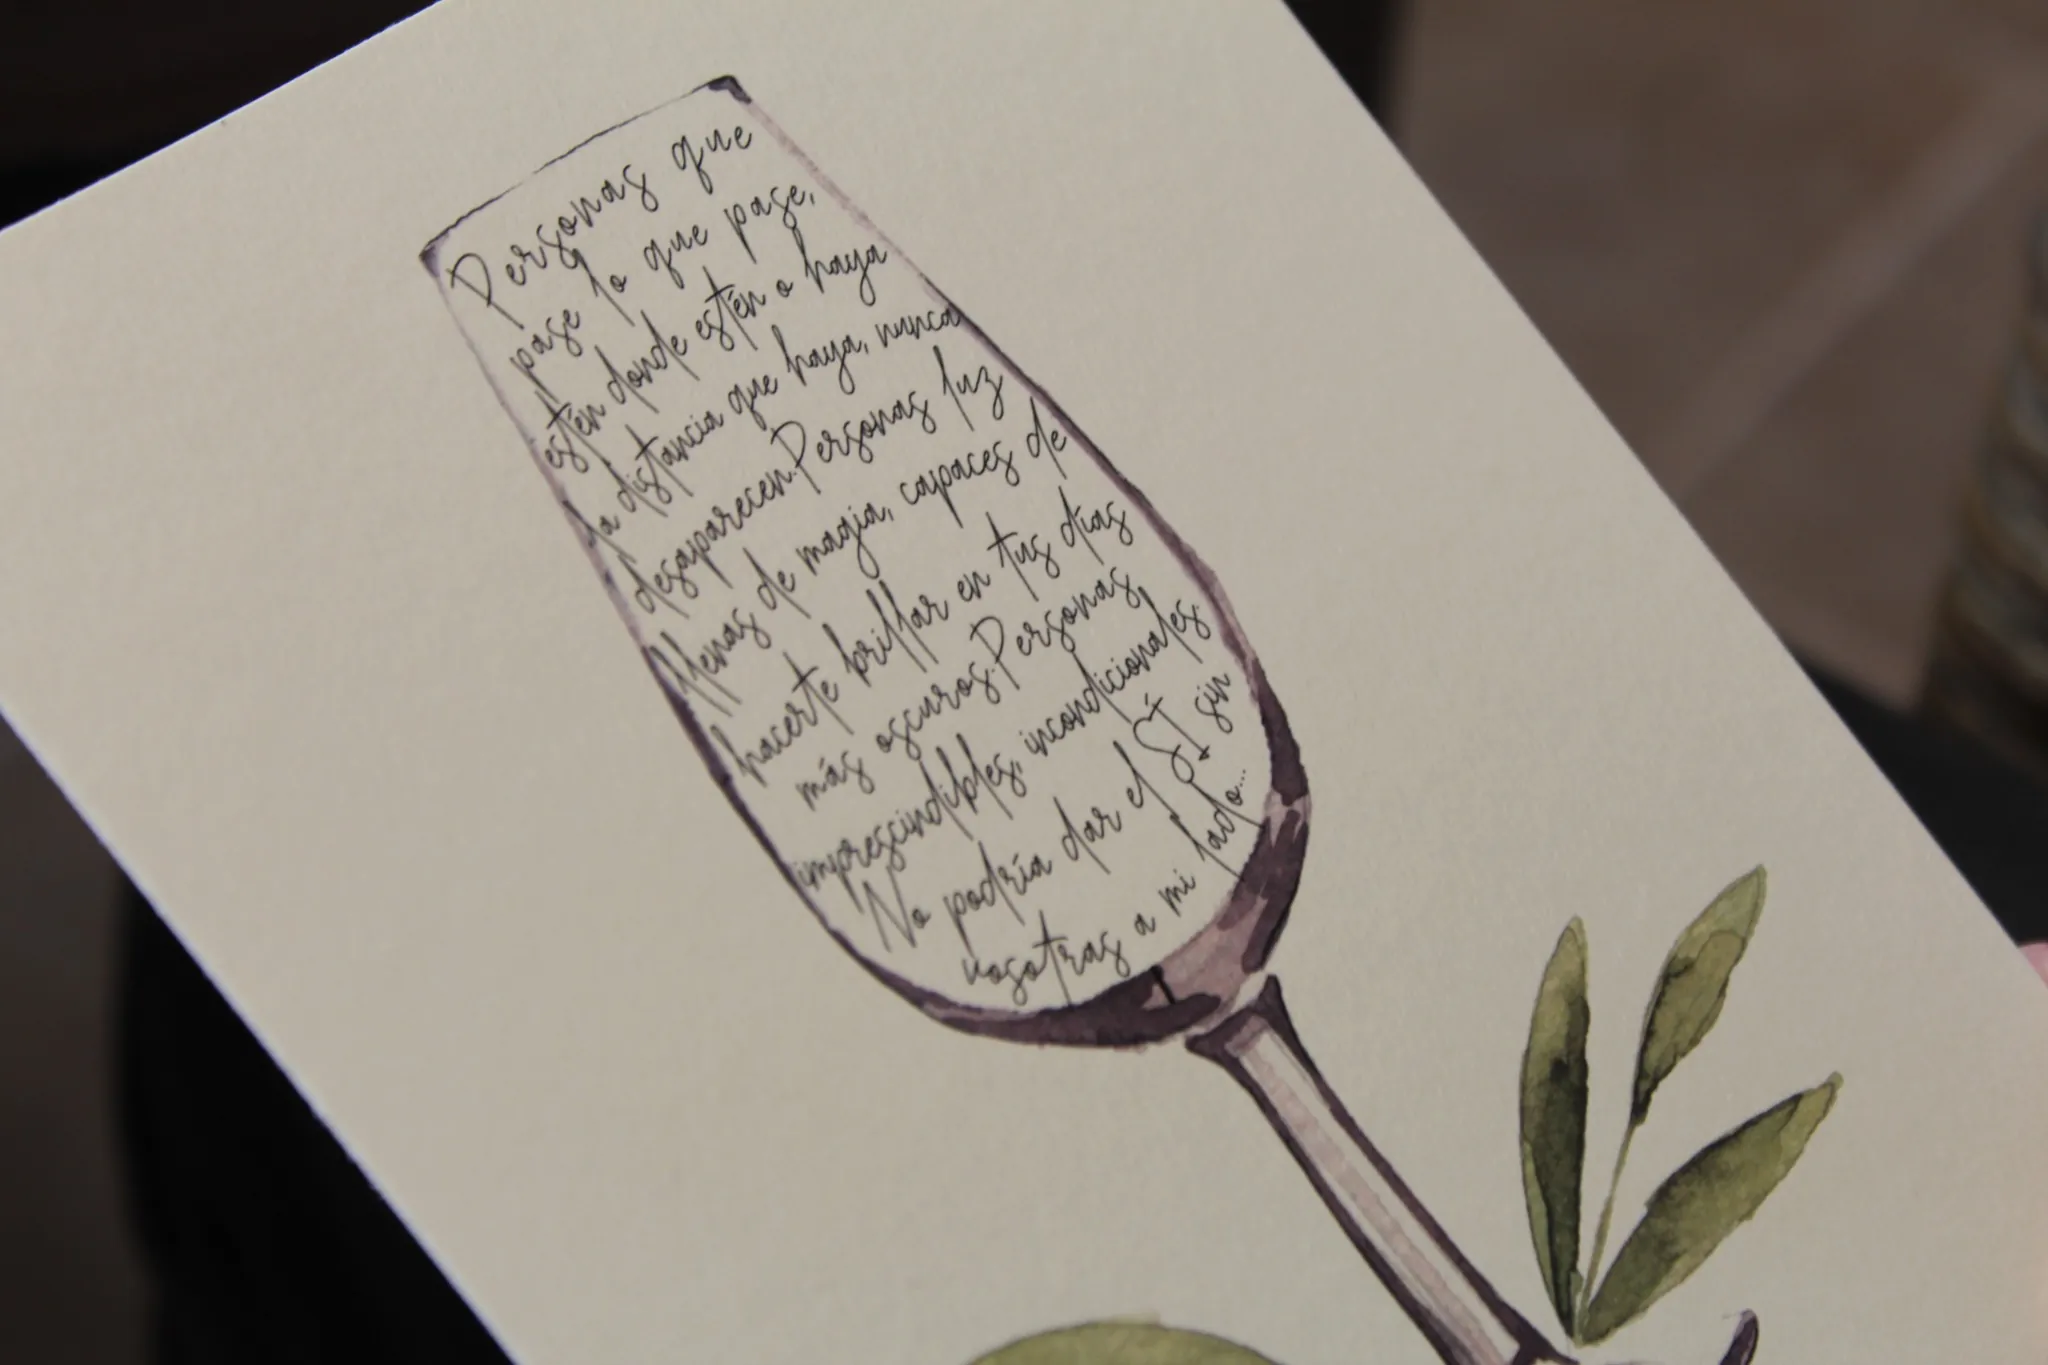 Personas que
pase lo que pase,
estén donde estén o haya
la distancia que haya, nunca
desaparecen. Personas luz
llenas de magia, capaces de
hacerte brillar en tus días
más oscuros. Personas
imprescindibles, incondicionales.
No podría dar el SÍ sin
vosotras a mi lado...